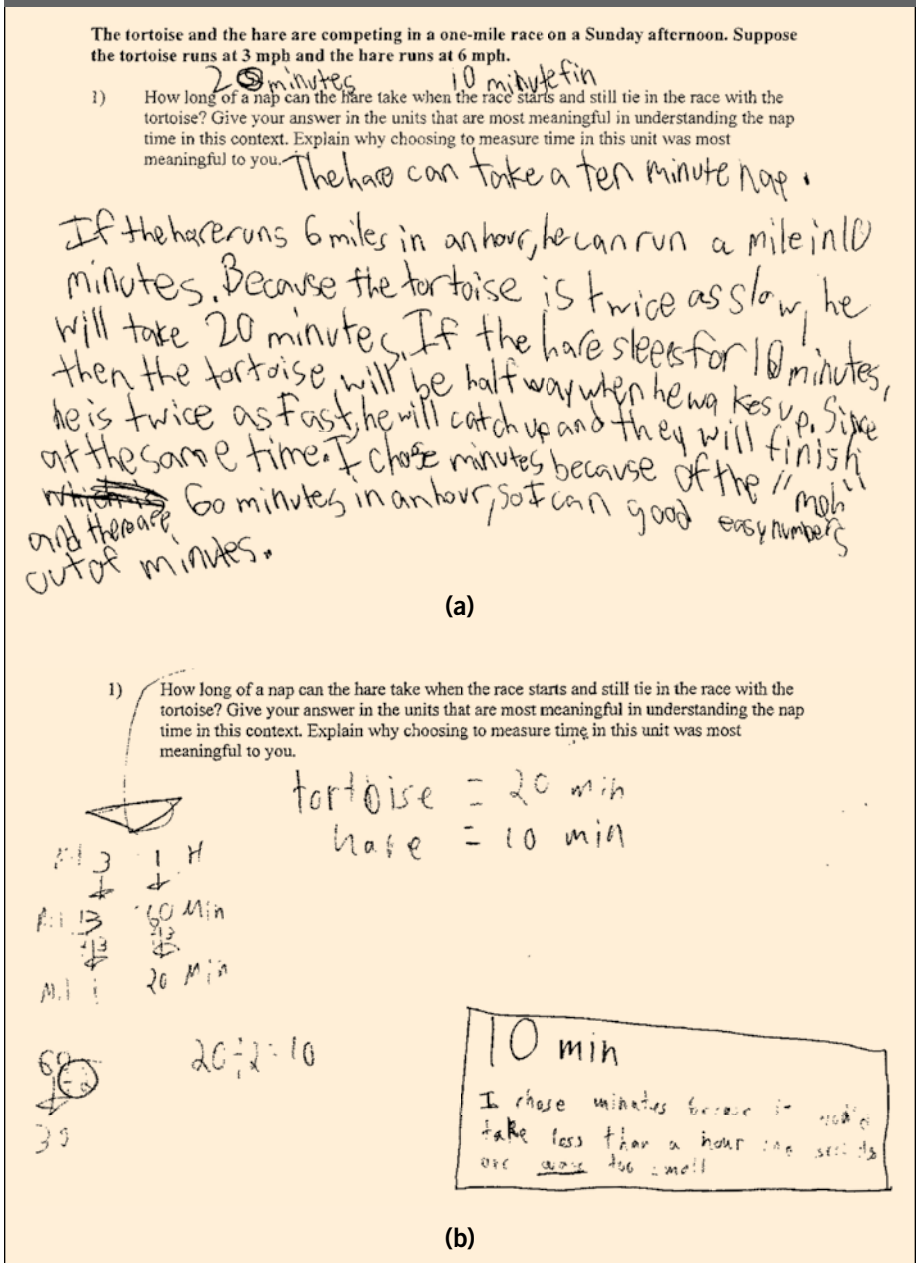 The tortoise and the hare are competing in a one-mile race on a Sunday afternoon. Suppose
the tortoise runs at 3 mph and the hare runs at 6 mph.
20 minutes 10 minute fin
1) How long of a nap can the hare take when the race starts and still tie in the race with the
tortoise? Give your answer in the units that are most meaningful in understanding the nap
time in this context. Explain why choosing to measure time in this unit was most
meaningful to you.
The hare can take a ten minute nap.
If the hare runs 6 miles in an hour, he can run a mile in 10
minutes. Because the tortoise is twice as slow, he
will take 20 minutes. If the hare sleeps for 10 minutes,
then the tortoise will be half way when he wakes up. Since
he is twice as fast, he will catch up and they will finish
at the same time. I chose minutes because of the "mph"
and there are 60 minutes in an hour, so I can good easy numbers
out of minutes.
(a)
1) How long of a nap can the hare take when the race starts and still tie in the race with the
tortoise? Give your answer in the units that are most meaningful in understanding the nap
time in this context. Explain why choosing to measure time in this unit was most
meaningful to you.
tortoise = 20 min
hare = 10 min
3 1 H
60 Min
20 Min
20÷2=10
10 min
I chose minutes
take less than a hour
are way too small
(b)